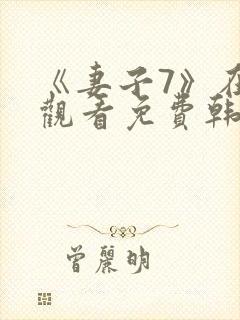 《妻子7》在
觀看免費韩
曾麗明